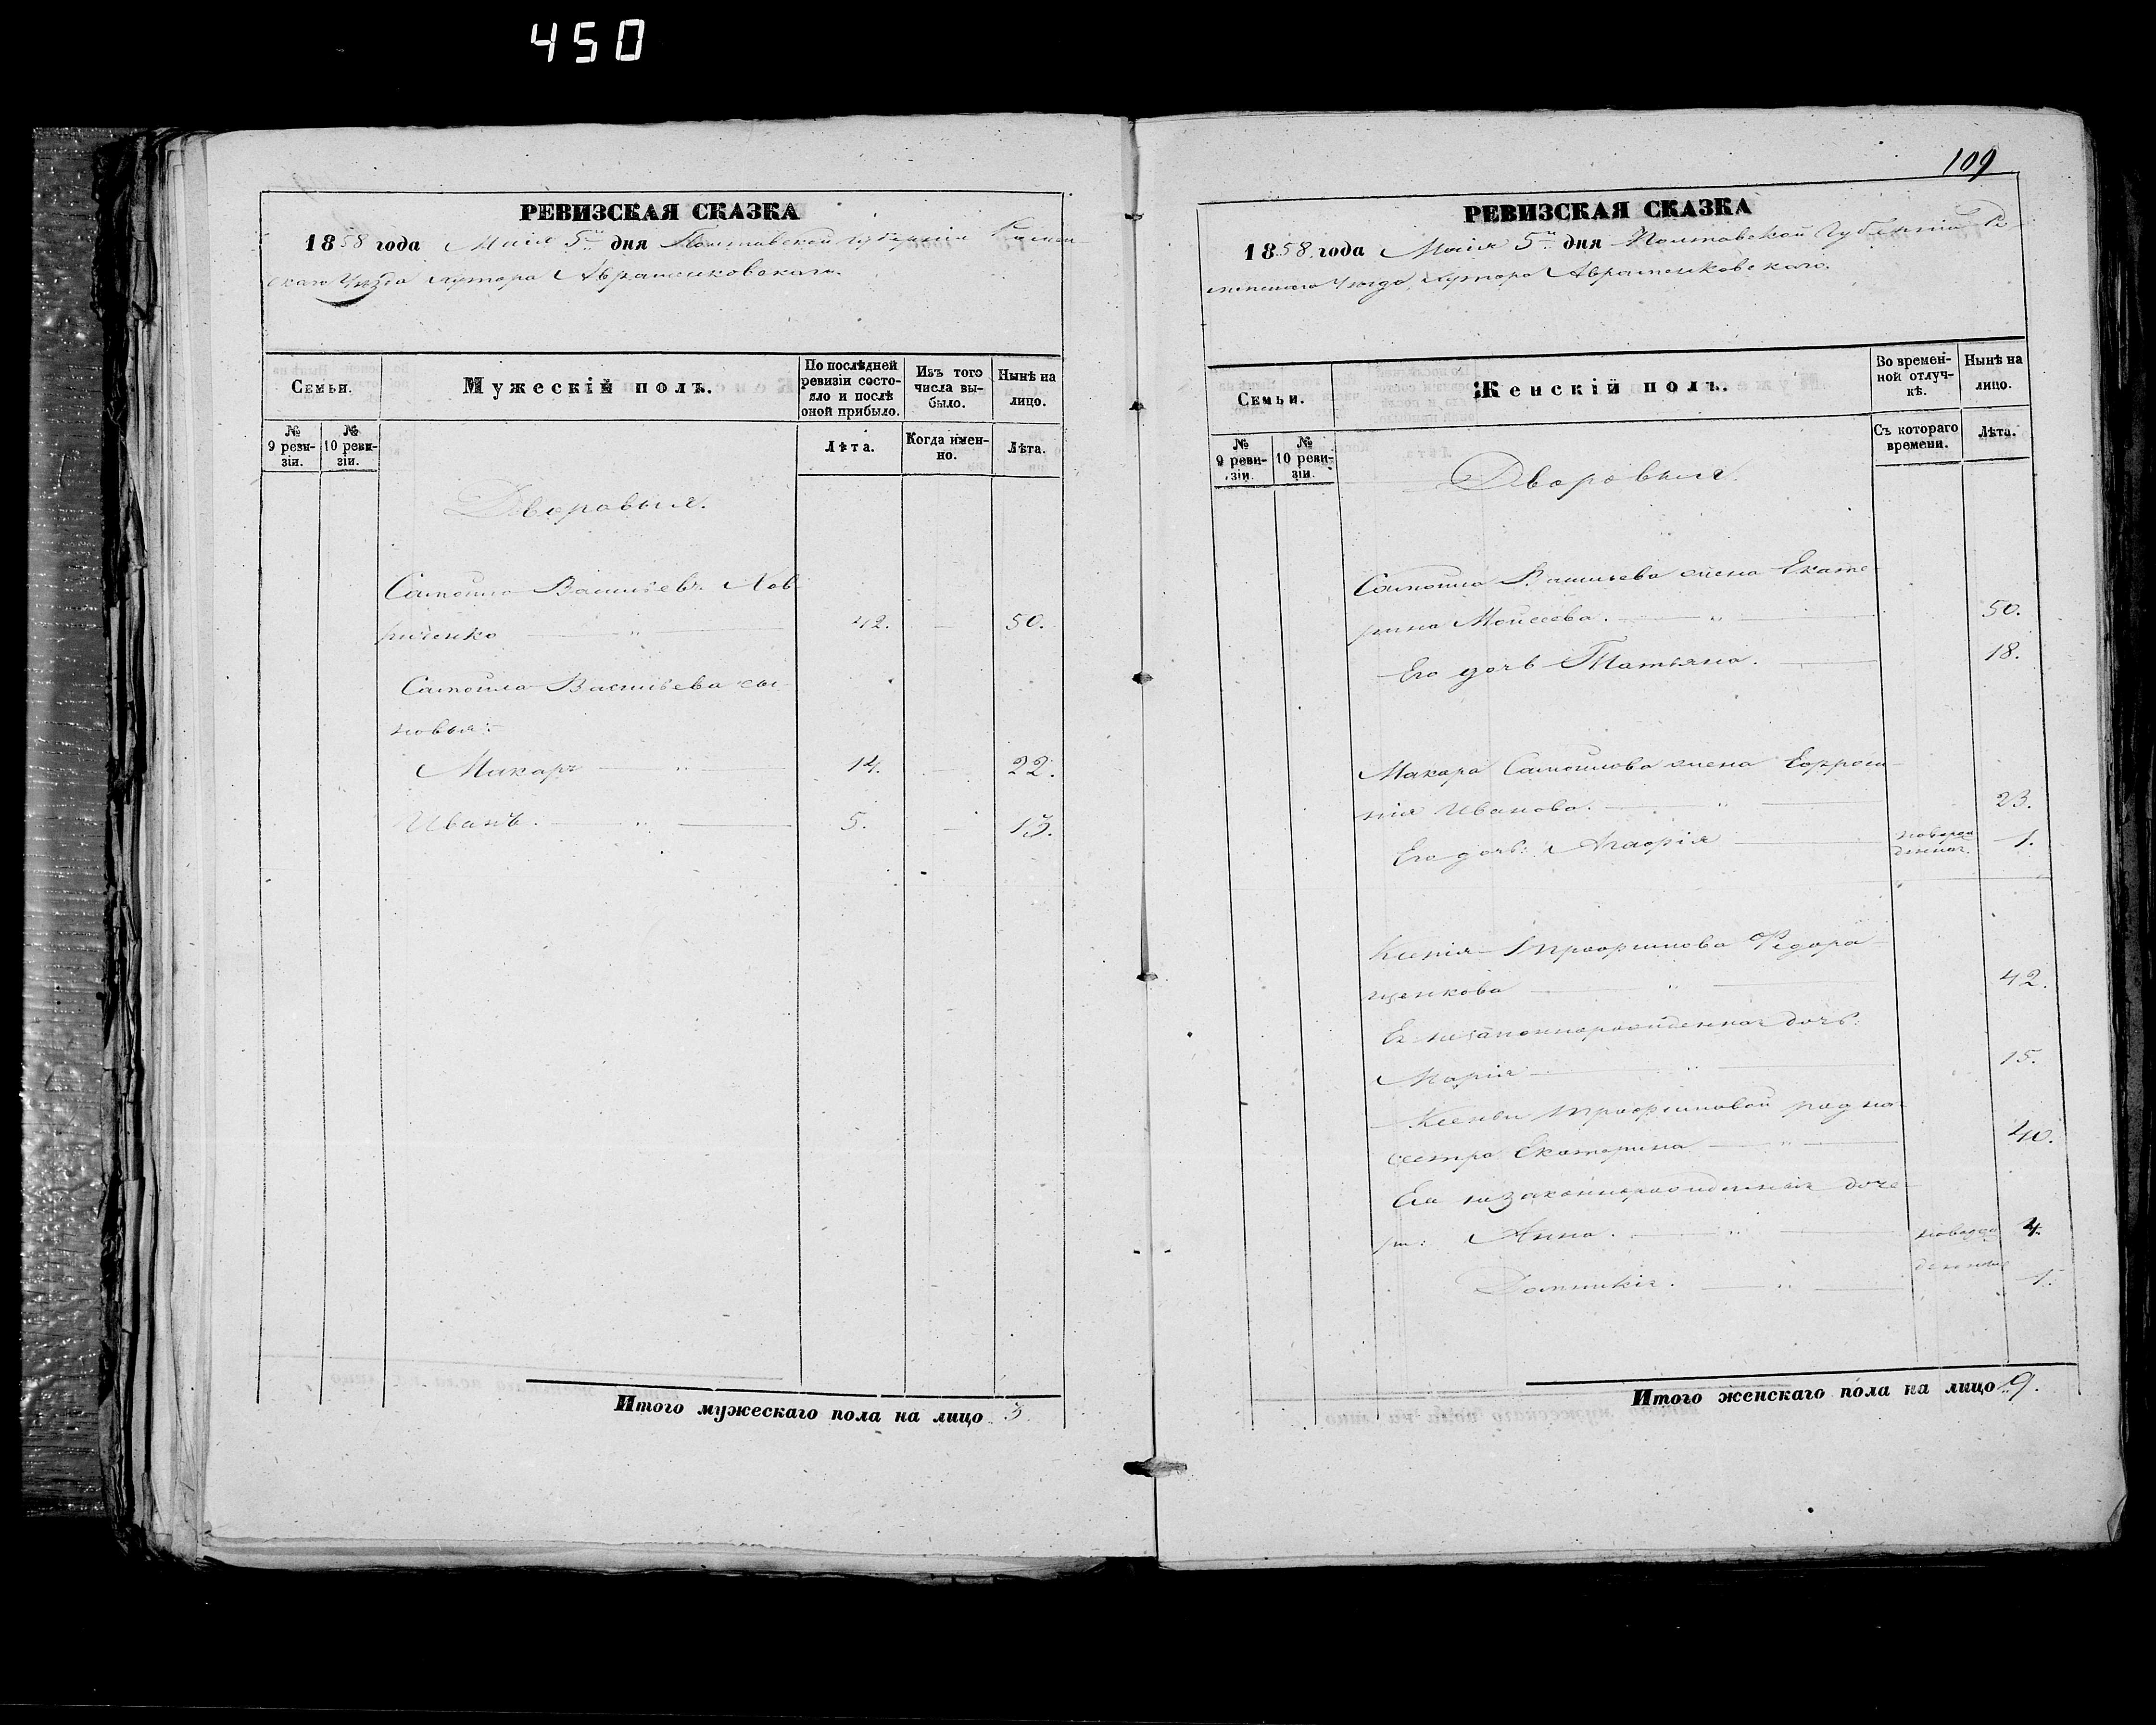 450
РЕВИЗСКАЯ СКАЗКА
1858 года Маія 5го дня Полтавской губерніи Ромен-
скаго Уѣзда хутора Авраменковскаго.
Семьи.
Мужескій полъ.
По послѣдней ревизіи состо-
яло и послѣ оной прибыло.
Изъ того числа вы-
было.
Нынѣ на лицо.
№ 9 реви-
зіи.
№ 10 реви-
зіи.
Лѣта.
Когда имен-
но.
Лѣта.
Дворовыя.
Самойло Васильевъ Лав-
риченко — „ — 42. — 50.
Самойла Васильева сы-
новья:
Макаръ — „ — 14. — 22.
Иванъ. — „ — 5. — 13.
Итого мужескаго пола на лицо 3.
109
РЕВИЗСКАЯ СКАЗКА
1858 года Маія 5го дня Полтавской Губерніи Ро-
менскаго Уѣзда хутора Авраменковскаго.
Семьи.
Женскій полъ.
Во времен-
ной отлуч-
кѣ.
Нынѣ на лицо.
№ 9 реви-
зіи.
№ 10 реви-
зіи.
Съ котораго времени.
Лѣта.
Дворовыя.
Самойла Васильева жена Екате-
рина Моисеева. — „ — 50.
Его дочь Татьяна. — 18.
Макара Самойлова жена Евфроси-
нія Иванова. — „ — 23.
Его дочь: Агафія — новорож
денная. 1.
Ксенія Трофимова Федора-
щенкова — „ — 42.
Ея незаконнорожденная дочь:
Марія — „ — 15.
Ксеніи Трофимовой родна
сестра Екатерина — „ — 40.
Ея незаконнорожденныя доче-
ри: Анна. — „ — новорож 4.
Домникія. — „ — денные 1.
Итого женскаго пола на лицо 9.